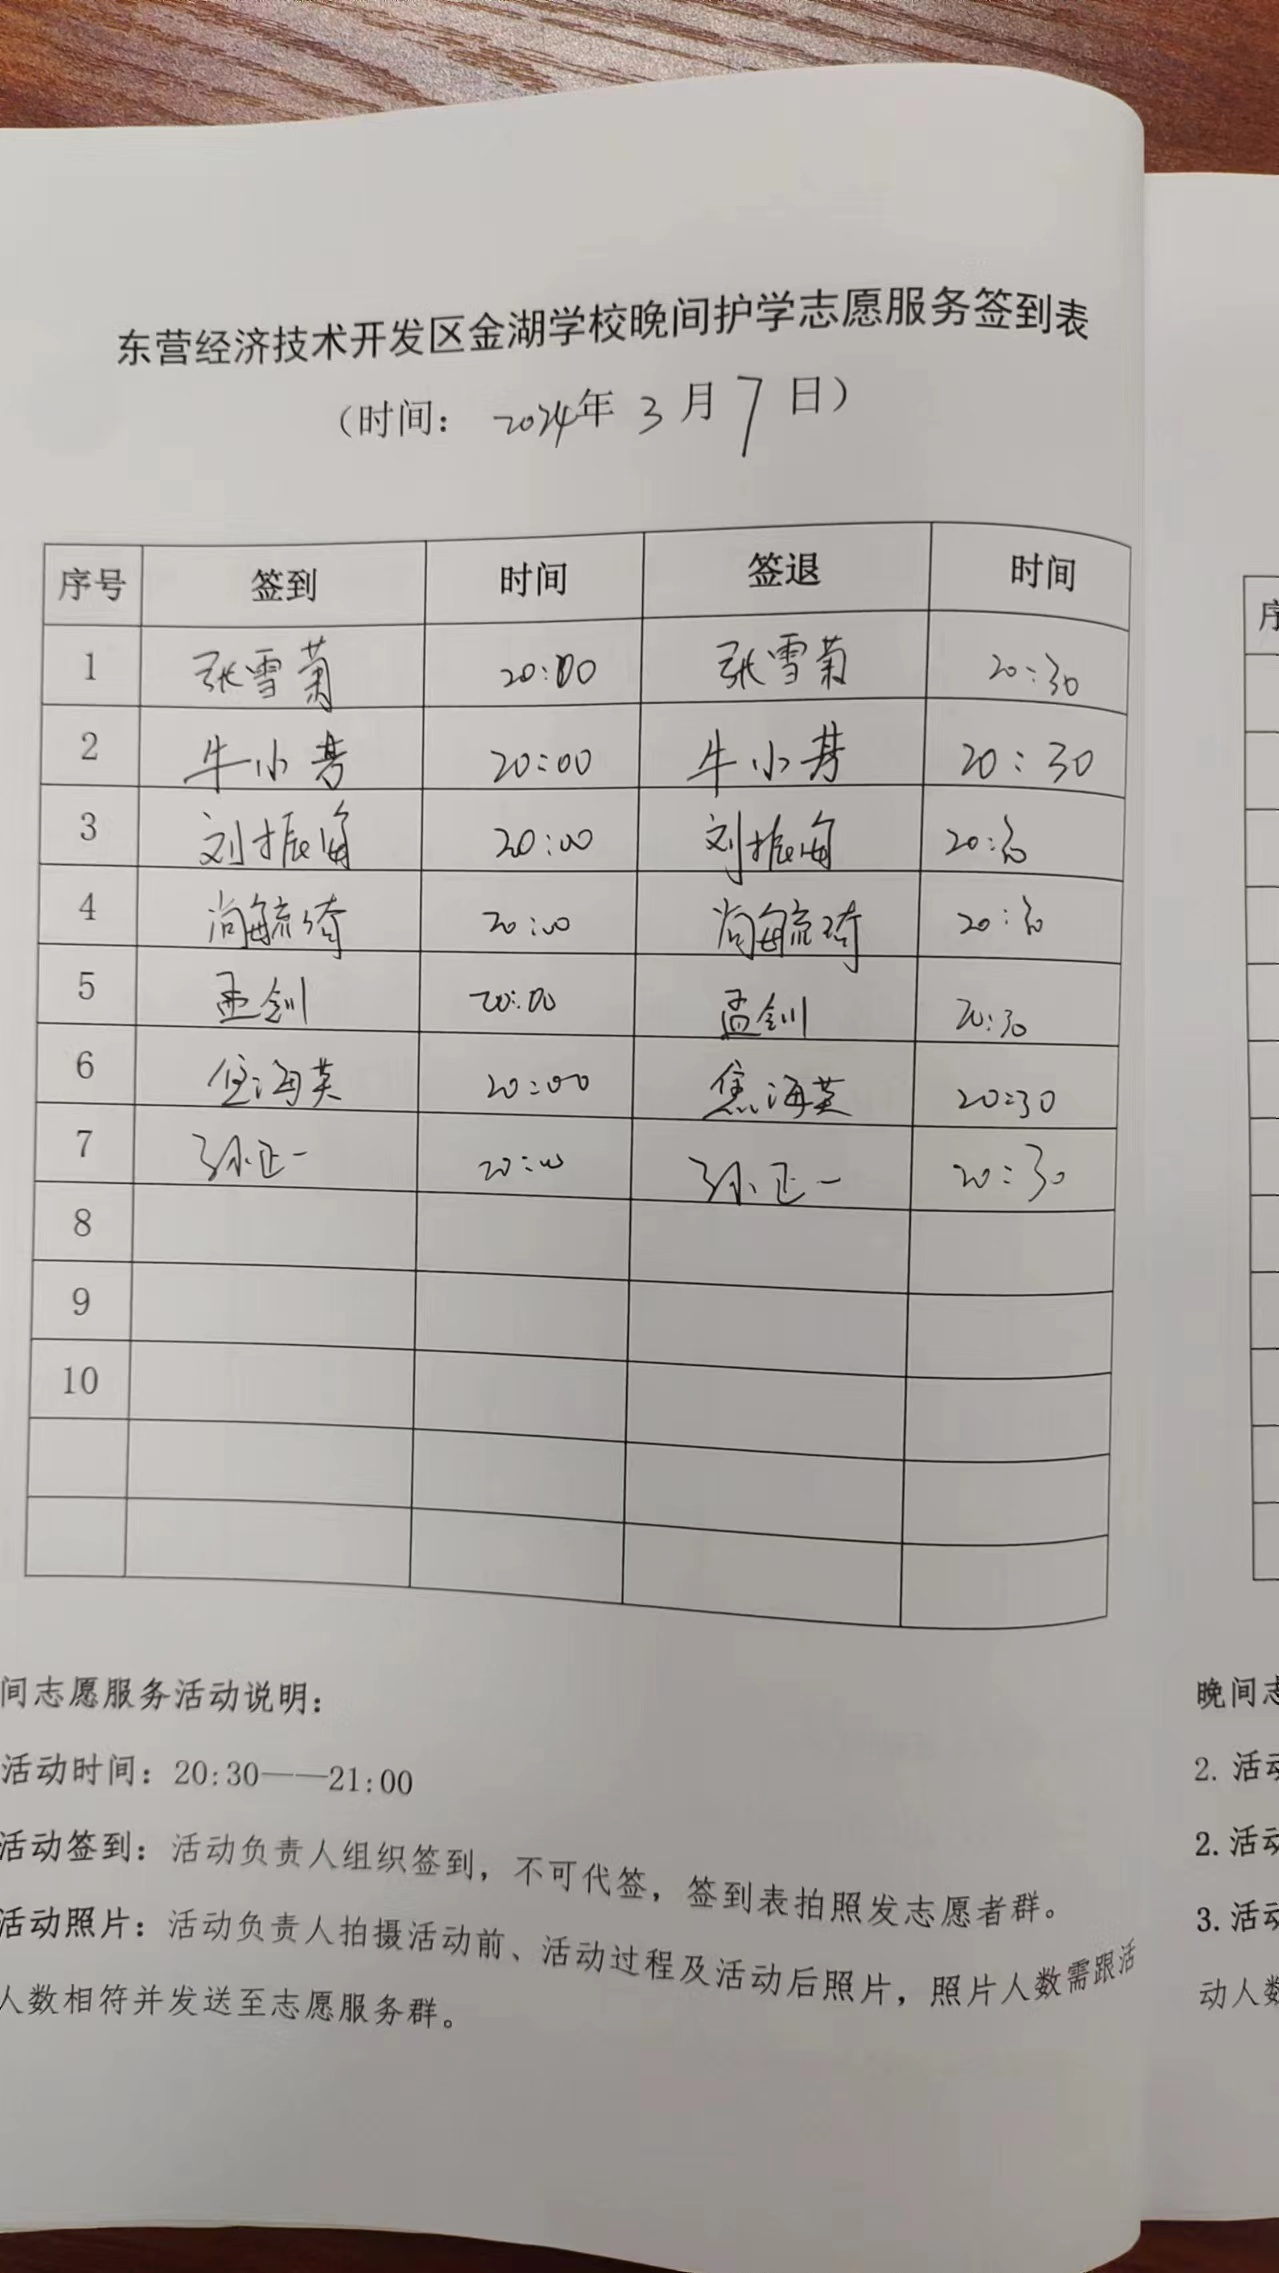 东营经济技术开发区金湖学校晚间护学志愿服务签到表
（时间： 2024年 3 月 7 日）
序号 签到 时间 签退 时间
1 张雪菊 20:00 张雪菊 20:30
2 牛小 20:00 牛小 20:30
3 刘振海 20:00 刘振海 20:30
4 尚毓琦 20:00 尚毓琦 20:30
5 孟钊 20:00 孟钊 20:30
6 焦海英 20:00 焦海英 20:30
7 孙正一 20:00 孙正一 20:30
8
9
10
间志愿服务活动说明：
活动时间：20:30——21:00
活动签到：活动负责人组织签到，不可代签，签到表拍照发志愿者群。
活动照片：活动负责人拍摄活动前、活动过程及活动后照片，照片人数需跟活
人数相符并发送至志愿服务群。
序
晚间志
2. 活动
2. 活动
3. 活动
动人数